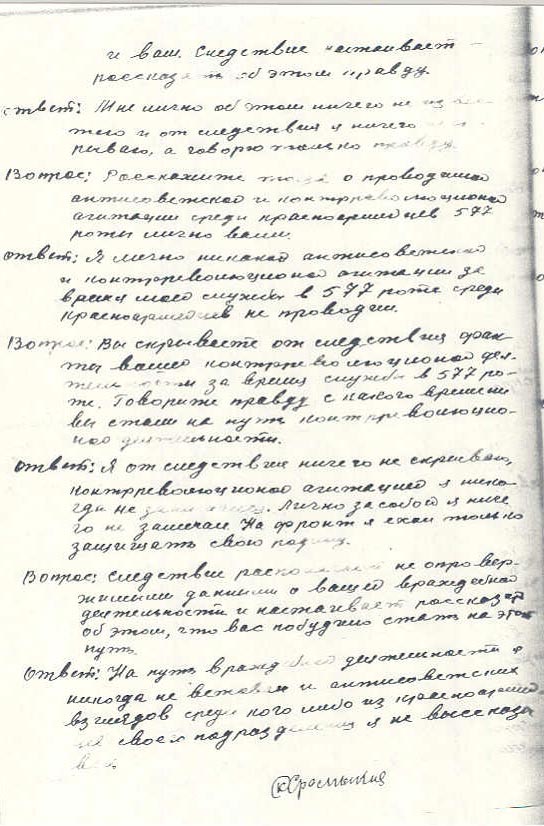 и вами. Следствие настаивает
рассказать об этом правду.
Ответ: Мне лично об этом ничего не
и от следствия я ничего не
рываю, а говорю только правду
Вопрос: Расскажите о проводимой
антисоветской и контрреволюционой
агитации среди красноармейцев 577
роты лично вами.
Ответ: Я лично никакой антисоветской
и контрреволюционой агитации за
время моей службы в 577 роте среди
красноармейцев не проводил.
Вопрос: Вы скрываете от следствия фак-
ты вашей контрреволюционой дея-
тельности за время службы в 577 ро-
те. Говорите правду с какого времени
вы стали на путь контрреволюцио-
ной деятельности.
Ответ: Я от следствия ничего не скрываю,
контрреволюционой агитацией я нико-
гда не. Лично за собой я ниче-
го не замечал. На фронт я ехал только
защищать свою родину.
Вопрос: Следствие располагает не опровер-
жимыми данными о вашей враждебной
деятельности и настаивает рассказать
об этом, что вас побудило стать на этот
путь.
Ответ: На путь враждебной деятельности я
никогда не вставал и антисоветских
взглядов среди кого либо из красноармей
своего подразделения я не высказы
вал.